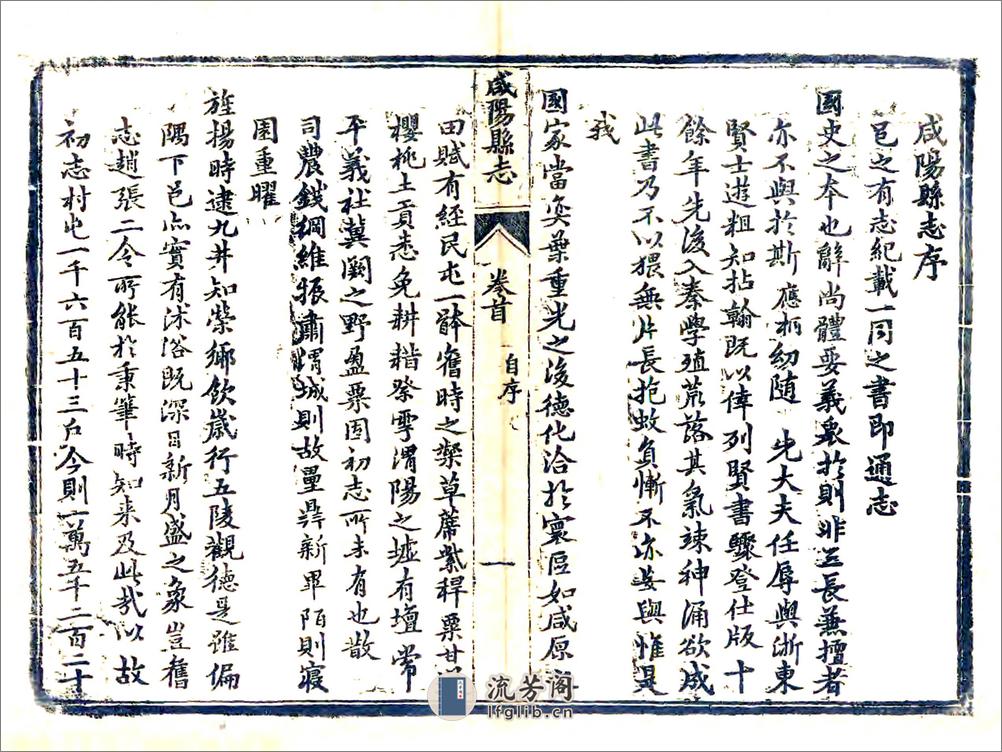 咸陽縣志序
邑之有志紀載一同之書即通志
國史之本也辭尚體要義衷於則非三長兼擅者
亦不與於斯應枬幼隨先大夫任辱與浙東
賢士遊粗知拈翰既以倖列賢書驟登仕版十
餘年先後入秦學殖荒落其氣竦神涌欲成
此書乃不以猥無片長抱蚊負慚不亦妄與惟是
我
國家當奕葉重光之後德化洽於寰區如咸原
咸陽縣志
卷首
自序
一
田賦有經民屯一體舊時之藥草蓆紫稈粟甘
櫻桃土貢悉免耕耤祭雩渭陽之墟有壇常
平義社冀闕之野盈粟固初志所未有也散
司農錢綱維振肅渭城則故壘鼎新畢陌則寢
園重曜
旌揚時逮九井知榮鄉飲歲行五陵觀德是雖偏
隅下邑亦實有沭浴既深日新月盛之象豈舊
志趙張二令所能於秉筆時知来及此哉以故
初志村屯一千六百五十三户今則一萬五千二百二十
流芳阁
lfglib.cn